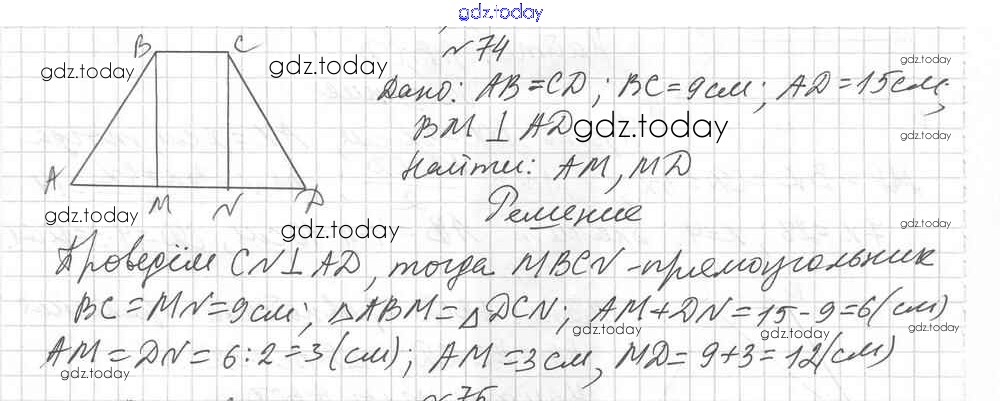 gdz.today
№74
B C
gdz.today gdz.today Дано: AB=CD; BC=9см; AD=15см; gdz.today
BM ⊥ AD gdz.today gdz.today
A Найти: AM, MD
M N D
gdz.today gdz.today Решение gdz.today
Проведём CN⊥AD, тогда MBCN-прямоугольник
BC=MN=9см; △ABM=△DCN; AM+DN=15-9=6(см)
gdz.today gdz.today gdz.today
AM=DN=6:2=3(см); AM=3см, MD=9+3=12(см)
gdz.today
№75